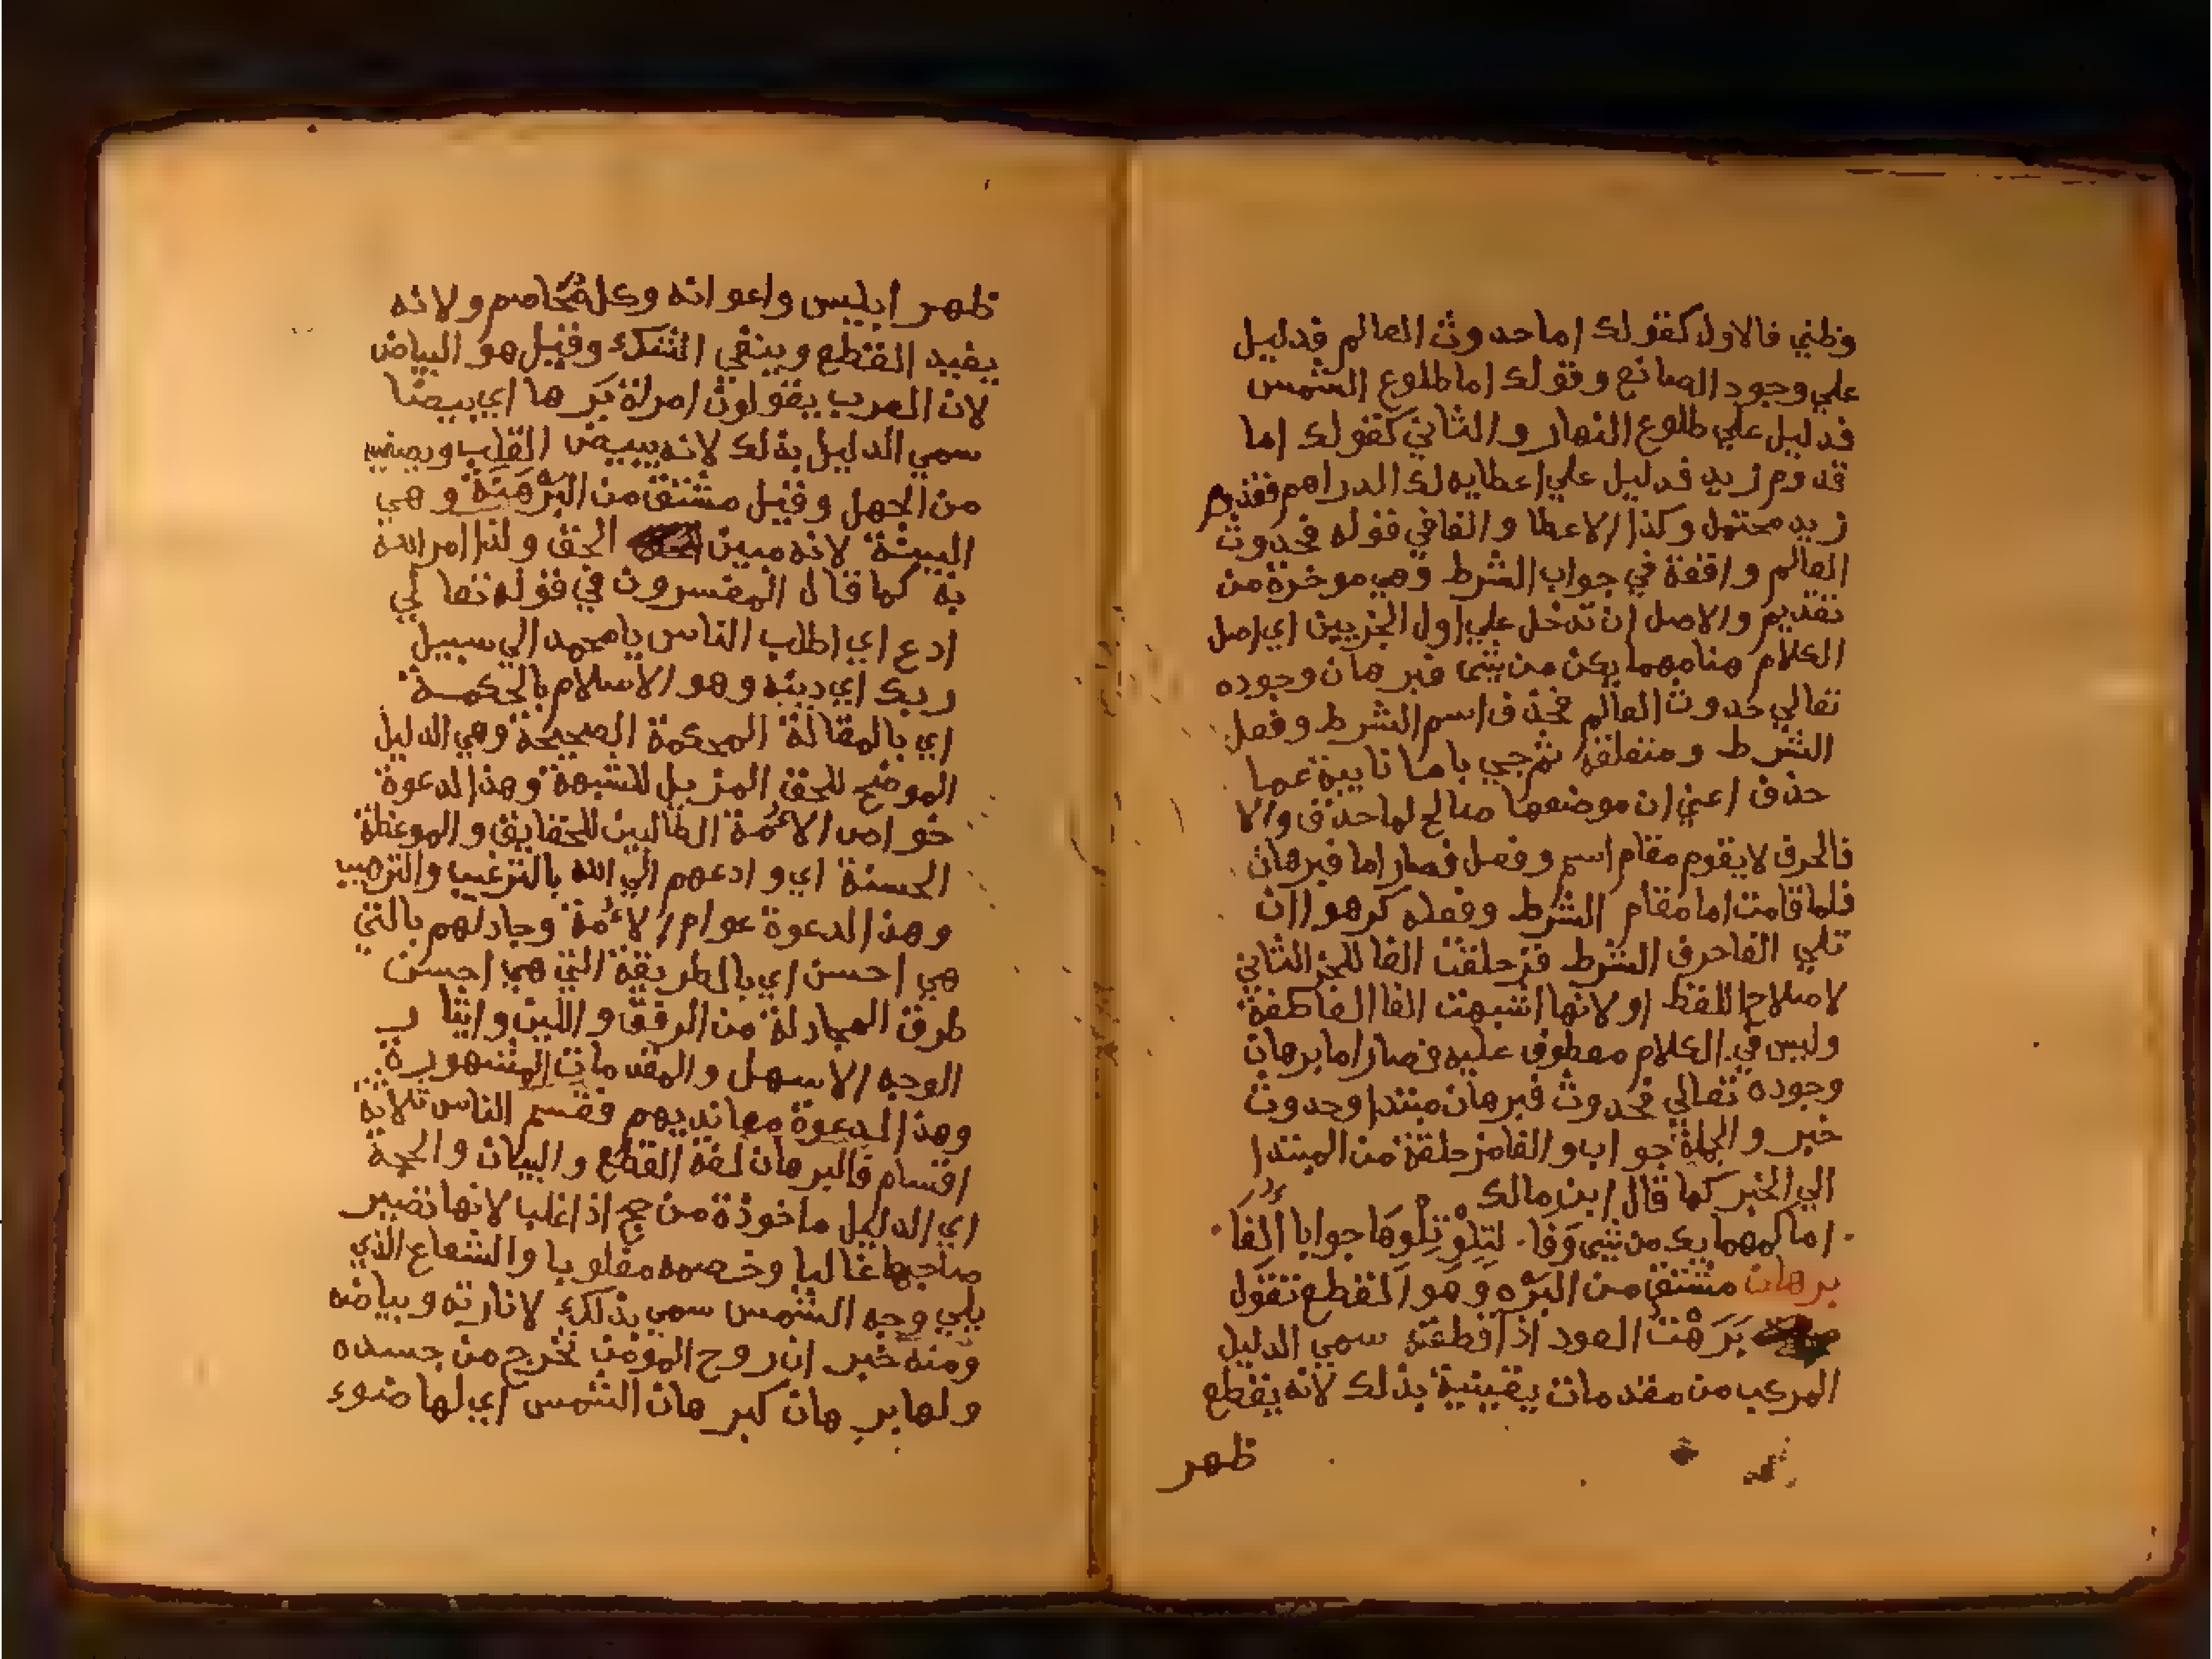 وظني فالاول كقولك اما حدوث العالم فدليل
علي وجود الصانع وقولك اما طلوع الشمس
فدليل علي طلوع النهار والثاني كقولك اما
قدوم زيد فدليل علي اعطايه لك الدراهم فقدوم
زيد محتمل وكذا الاعطا والفا في قوله فحدوث
العالم واقفة في جواب الشرط وهي موخرة من
تقديم والاصل ان تدخل علي اول الجزيين اي اصل
الكلام هنا مهما يكن من شي فبرهان وجوده
تعالي حدوث العالم فحذف اسم الشرط وفعل
الشرط ومتعلقه ثم جي باما نايبة عما
حذف اعني ان موضعها صالح لما حذف والا
فالحرف لا يقوم مقام اسم وفعل فصار اما فبرهان
فلما قامت اما مقام الشرط وفعله كرهوا ان
تلي الفا حرف الشرط فزحلقت الفا للجز الثاني
لاصلاح اللفظ او لانها اشبهت الفا العاطفة
وليس في الكلام معطوف عليه فصار اما برهان
وجوده تعالي فحدوث فبرهان مبتدا وحدوث
خبر والجملة جواب والفا مزحلقة من المبتدا
الي الخبر كما قال ابن مالك
اما كمهما يك من شي وَفَا . لِتِلْوِ تِلْوِهَا جوابا اُلِفَا
برهان مشتق من البَرْه وهو القطع تقول
بَرَهْتُ العود اذا قطعته سمي الدليل
المركب من مقدمات يقينية بذلك لانه يقطع
ظهر
ظهر ابليس واعوانه وكل مُخاصم ولانه
يفيد القطع وينفي الشك وقيل هو البياض
لان العرب يقولون امراة بَرَها اي بيضا
سمي الدليل بذلك لانه يبيض القلب ويصفيه
من الجهل وقيل مشتق من البَرْهَنَة وهي
البينة لانه مبين الحق ولذا امر الله
به كما قال المفسرون في قوله تعالي
ادع اي اطلب الناس يا محمد الي سبيل
ربك اي دينه وهو الاسلام بالحكمة
اي بالمقالة المحكمة الصحيحة وهي الدليل
الموضح للحق المزيل للشبهة وهذا لدعوة
خواص الاُمة الطالبين للحقايق والموعظة
الحسنة اي وادعهم الي الله بالترغيب والترهيب
وهذا لدعوة عوام الاُمة وجادلهم بالتي
هي احسن اي بالطريقة التي هي احسن
طرق المجادلة من الرفق واللين وايثار
الوجه الاسهل والمقدمات المشهورة
وهذا لدعوة معانديهم فقسم الناس ثلاثة
اقسام فالبرهان لغة القطع والبيان والحجة
اي الدليل ماخوذة من حج اذا غلب لانها تصير
صاحبها غالبا وخصمه مغلوبا والشعاع الذي
يلي وجه الشمس سمي بذلك لانارته وبياضه
ومنه خبر ان روح المومن تخرج من جسده
ولها برهان كبرهان الشمس اي لها ضوء